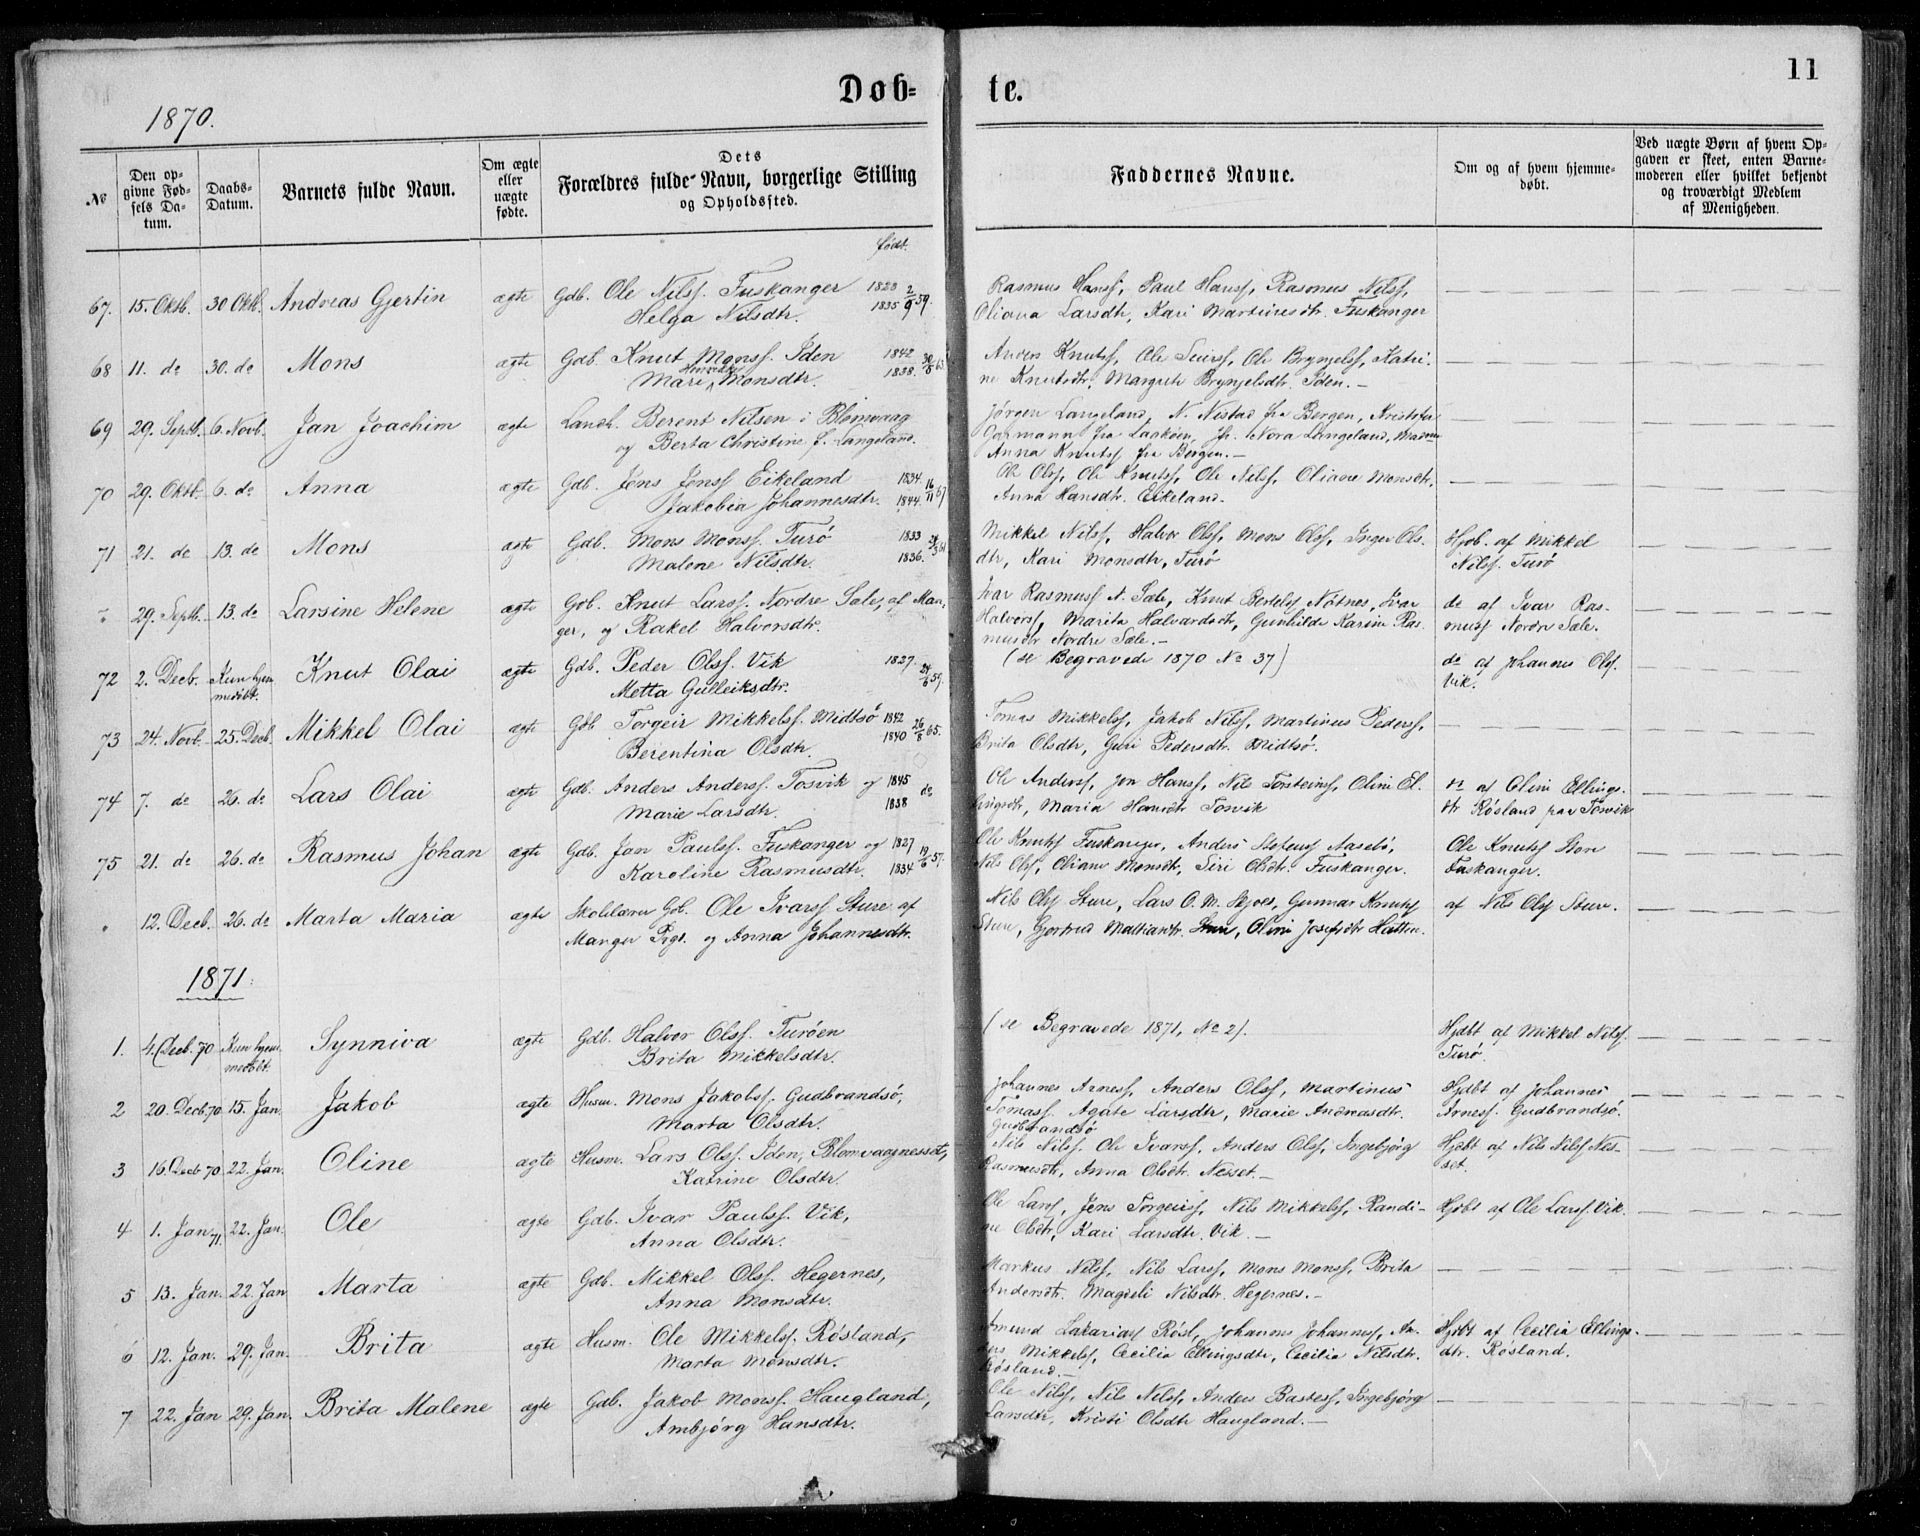 11
Døb= te.
1870.
№
Den op-
givne Fød-
sels Da-
tum.
Daabs-
Datum.
Barnets fulde Navn.
Om ægte
eller
uægte
fødte.
Dets
Forældres fulde Navn, borgerlige Stilling
og Opholdssted.
Faddernes Navne.
Om og af hvem hjemme-
døbt.
Ved uægte Børn af hvem Op-
gaven er skeet, enten Barne-
moderen eller hvilket bekjendt
og troværdigt Medlem
af Menigheden.
født.
67. 15. Oktb. 30 Oktb. Andreas Gjertin ægte Gdb. Ole Nilss. Fuskanger 1823 2/9 59.
Helga Nilsdtr. 1835
Rasmus Hanss, Paul Hanss, Rasmus Nilss,
Oliana Larsdtr, Kari Martinusdtr. Fuskanger
68 11. do 30. do Mons ægte Gdb. Knut Monss. Iden 1842
Mari Monsdtr. 1838.
Anders Knutss, Ole Seiurss, Ole Brynjelss, Katri-
ne Knutsdtr, Margrete Brynjelsdtr. Iden.
69 29. Septb. 6. Novb. Jan Joachim ægte Landh. Berent Nilsen i Blomvaag
og Berta Christine f. Langeland.
Jørgen Langeland, N. Nistad fra Bergen, Kristofer
Garmann fra Laskøen, Jfr. Nora Langeland, Madam
Anna Knutss fra Bergen.
70 29. Oktb. 6. do Anna ægte Gdb. Jens Jenss Eikeland 1834. 16/11 67
Jakobia Johannesdtr. 1844.
Ole Olss, Ole Knutss, Ole Nilss, Oliane Monsdtr,
Anna Hansdtr. Eikeland.
71 21. do 13. do Mons ægte Gdb. Mons Monss. Turø 1833
Malene Nilsdtr. 1836.
Mikkel Nilss, Halvor Olss, Mons Olss, Inger Ols-
dtr, Kari Monsdtr, Turø
Hjdb. af Mikkel
Nilss. Turø
29. Septb. 13. do Larsine Helene ægte Gdb. Knut Larss. Nordre Sæle, af Man-
ger, og Rakel Halvorsdtr.
Ivar Rasmuss N. Sæle, Knut Bertelss Nøtnes, Ivar
Halvorss, Marita Halvardsdtr, Gunhilde Karine Ras-
musdtr Nordre Sæle.
do af Ivar Ras-
muss Nordre Sæle.
72 2. Decb. Kun hjem-
medøbt. Knut Olai ægte Gdb. Peder Olss. Vik 1827. 59.
Metta Gulleiksdtr.
(se Begravede 1870 № 37)
do af Johannes Olss.
Vik.
73 24. Novb. 25. Decb. Mikkel Olai ægte Gdb Torgeir Mikkelss. Midtsø 1842 26/8 65.
Berentina Olsdtr. 1840
Tomas Mikkelss, Jakob Nilss, Martinus Pederss,
Brita Olsdtr, Guri Pedersdtr. Midtsø.
74 7. do 26. do Lars Olai ægte Gdb. Anders Anderss. Tosvik og 1845 do
Marie Larsdtr. 1838
Ole Anderss, Jon Hanss, Nils Torsteinss, Oline El-
lingsdtr, Maria Hansdtr Tosvik
do af Oline Ellings-
dtr Røsland paa Tosvik
75 21. do 26. do Rasmus Johan ægte Gdb. Jan Paulss. Fuskanger og 1827 19/6 57.
Karoline Rasmusdtr. 1834
Ole Knutss Fuskanger, Anders Aasebø,
Nils Olss, Oliane Monsdtr, Siri Olsdtr. Fuskanger.
Ole Knutss Store
Fuskanger.
12. Decb. 26. do Marta Maria ægte Skolelærer Gdb. Ole Ivarss. Sture af
Manger Prgl. og Anna Johannesdtr.
Nils Olss Sture, Lars O. M. Njoes, Gunnar Knutss
Sture, Gjertrud Mattiasdtr. Sture, Oline Josefsdtr Hatten.
af Nils Olss Sture.
1871.
1. 4. Decb. 70 Kun hjem-
medøbt. Synniva ægte Gdb. Halvor Olss. Turøen
Brita Mikkelsdtr.
(se Begravede 1871, № 2).
Hjdbt af Mikkel Nilss.
Turø.
2 20. Decb 70 15. Jan. Jakob ægte Husm. Mons Jakobss. Gudbrandsø,
Marta Olsdtr.
Johannes Arness, Anders Olss, Martinus
Tomass. Agate Larsdtr, Marie Andreasdtr.
Gudbrandsø
Hjdbt af Johannes
Arness. Gudbrandsø.
3 16. Decb 70 22. Jan. Oline ægte Husm. Lars Olss. Iden, Blomvaagnesset,
Katrine Olsdtr.
Nils Nilss. Ole Ivarss, Anders Olss, Ingebjørg
Rasmusdtr, Anna Olsdtr. Nesset.
Hjdbt af Nils Nilss Nes-
set.
4 1. Jan 71. 22. Jan. Ole ægte Gdb. Ivar Paulss. Vik,
Anna Olsdtr.
Ole Larss, Jens Torgeirss, Nils Mikkelss, Randi-
ne Olsdtr, Kari Larsdtr. Vik.
Hjdbt af Ole Larss. Vik.
5 13. Jan. 22. Jan Marta ægte Gdb. Mikkel Olss. Hegernes,
Anna Monsdtr.
Markus Nilss, Nils Larss, Mons Monss, Brita
Andersdtr. Magdeli Nilsdtr. Hegernes.
6 12. Jan. 29. Jan. Brita ægte Husm. Ole Mikkelss. Røsland,
Marta Monsdtr.
Amund Sakariass Røsl., Johannes Johanness, An-
ders Mikkelss, Cecilia Ellingsdtr, Cecilia Nilsdtr.
Røsland.
Hjdbt af Cecilia Ellings-
dtr. Røsland.
7 22. Jan 29. Jan. Brita Malene ægte Gdb. Jakob Monss. Haugland,
Ambjørg Hansdtr.
Ole Nilss, Nils Nilss, Anders Bastess, Ingebjørg
Larsdtr, Kristi Olsdtr Haugland.